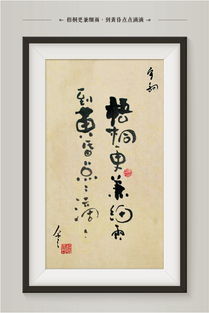 梧桐更兼细雨 · 到黄昏点点滴滴
梧桐更兼细雨
到黄昏点点滴滴